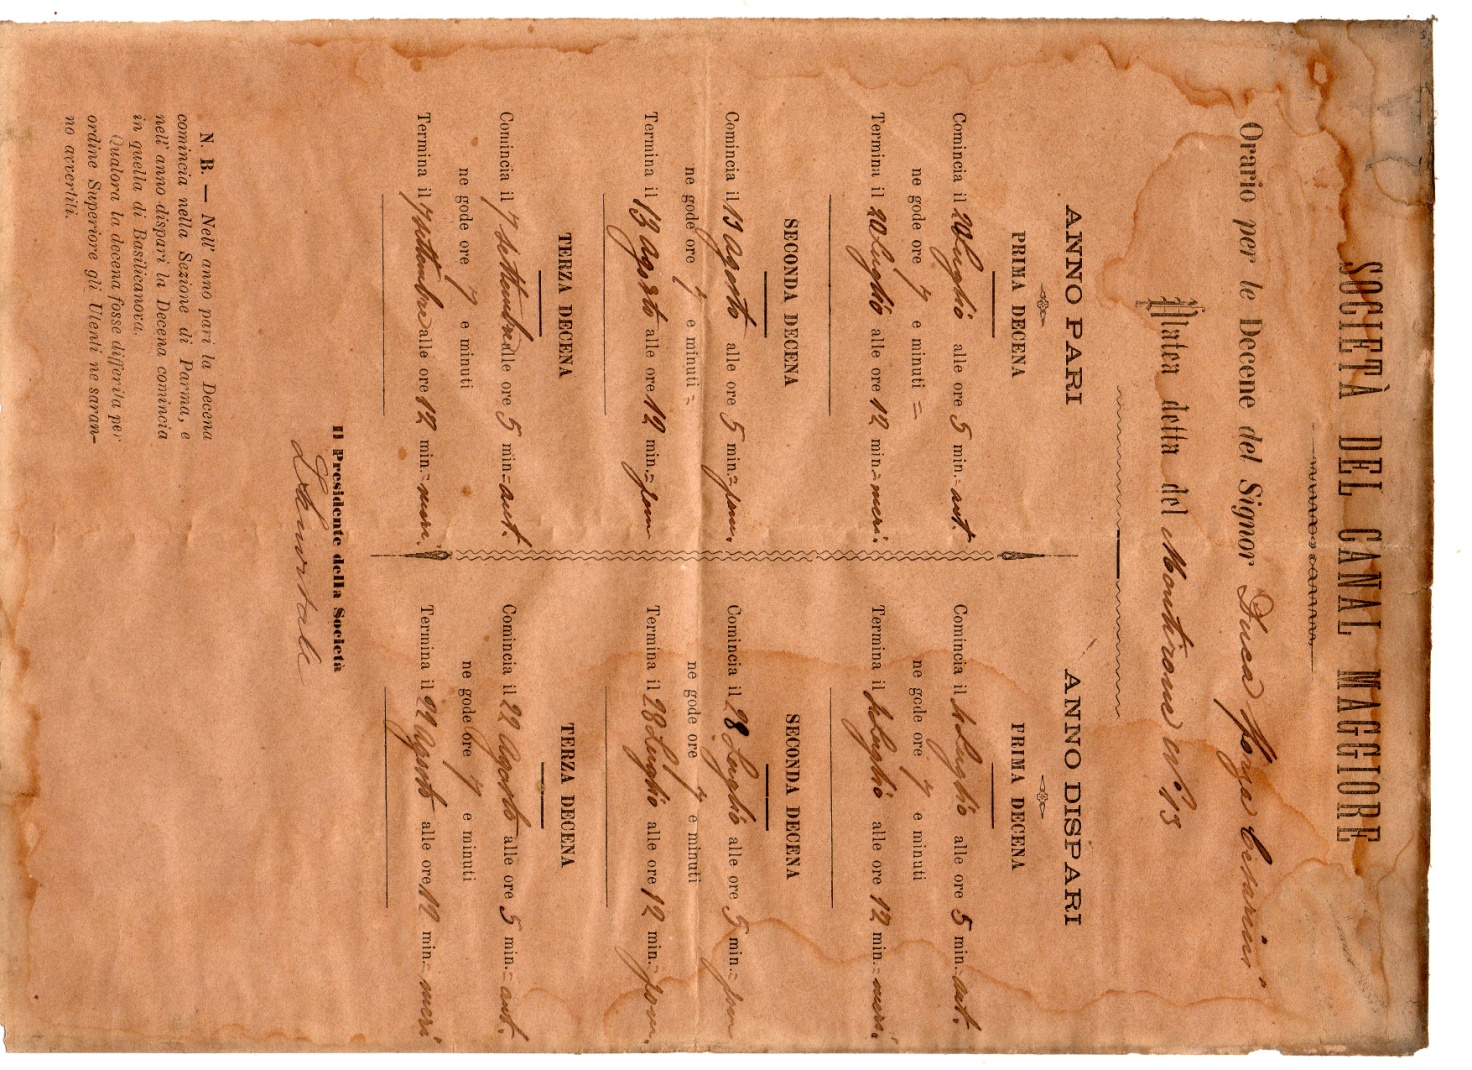 SOCIETÀ DEL CANAL MAGGIORE
Orario per le Decene del Signor Duca Sforza Cesarini
Platea detta del Montirone N° 13
ANNO PARI
PRIMA DECENA
Comincia il 20 Luglio alle ore 5 min. = ant.
ne gode ore 7 e minuti =
Termina il 20 Luglio alle ore 12 min. = meri.
SECONDA DECENA
Comincia il 13 Agosto alle ore 5 min. = pom.
ne gode ore 7 e minuti =
Termina il 13 Agosto alle ore 12 min. = pom
TERZA DECENA
Comincia il 7 Settembre alle ore 5 min. = ant.
ne gode ore 7 e minuti
Termina il 7 Settembre alle ore 12 min. = meri.
ANNO DISPARI
PRIMA DECENA
Comincia il 4 Luglio alle ore 5 min. = ant.
ne gode ore 7 e minuti
Termina il 4 Luglio alle ore 12 min. = meri.
SECONDA DECENA
Comincia il 28 Luglio alle ore 5 min. = pom
ne gode ore 7 e minuti
Termina il 28 Luglio alle ore 12 min. = pom.
TERZA DECENA
Comincia il 22 Agosto alle ore 5 min. = ant.
ne gode ore 7 e minuti
Termina il 22 Agosto alle ore 12 min. = meri
Il Presidente della Società
N. B. — Nell' anno pari la Decena
comincia nella Sezione di Parma, e
nell' anno dispari la Decena comincia
in quella di Basilicanova.
Qualora la decena fosse differita per
ordine Superiore gli Utenti ne saran-
no avvertiti.